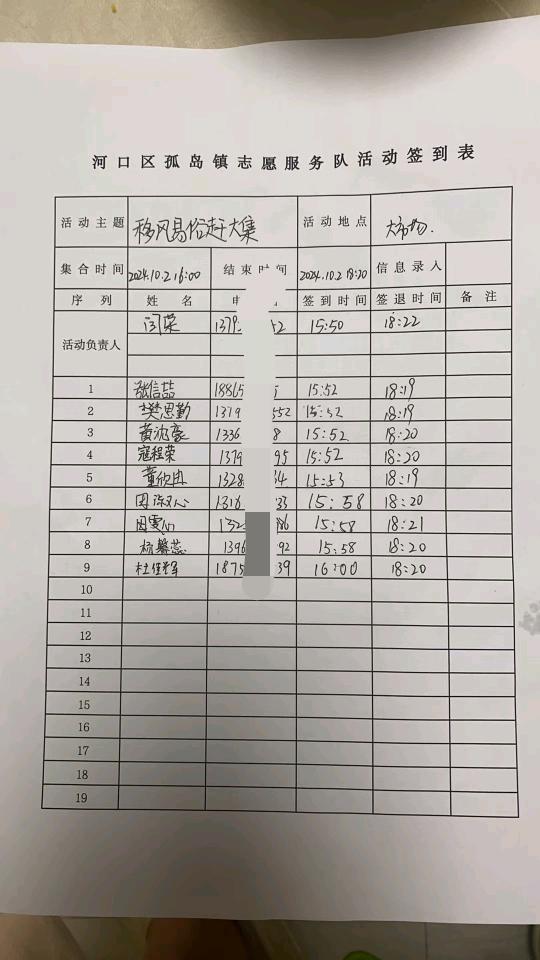 河口区孤岛镇志愿服务队活动签到表
活动主题 移风易俗赶大集 活动地点 大市场.
集合时间 2024.10.2 16:00 结束时间 2024.10.2 18:20 信息录入
序列 姓名 电 签到时间 签退时间 备注
活动负责人 闫荣 1379 52 15:50 18:22
1 张信喆 18865 5 15:52 18:19
2 樊思勤 1379 552 15:52 18:19
3 黄沈豪 1336 8 15:52 18:20
4 寇程荣 1379 95 15:52 18:20
5 董欣冉 1328 34 15:53 18:19
6 1316 33 15:58 18:20
7 132 86 15:58 18:21
8 杨馨蕊 1396 92 15:58 18:20
9 1875 39 16:00 18:20
10
11
12
13
14
15
16
17
18
19